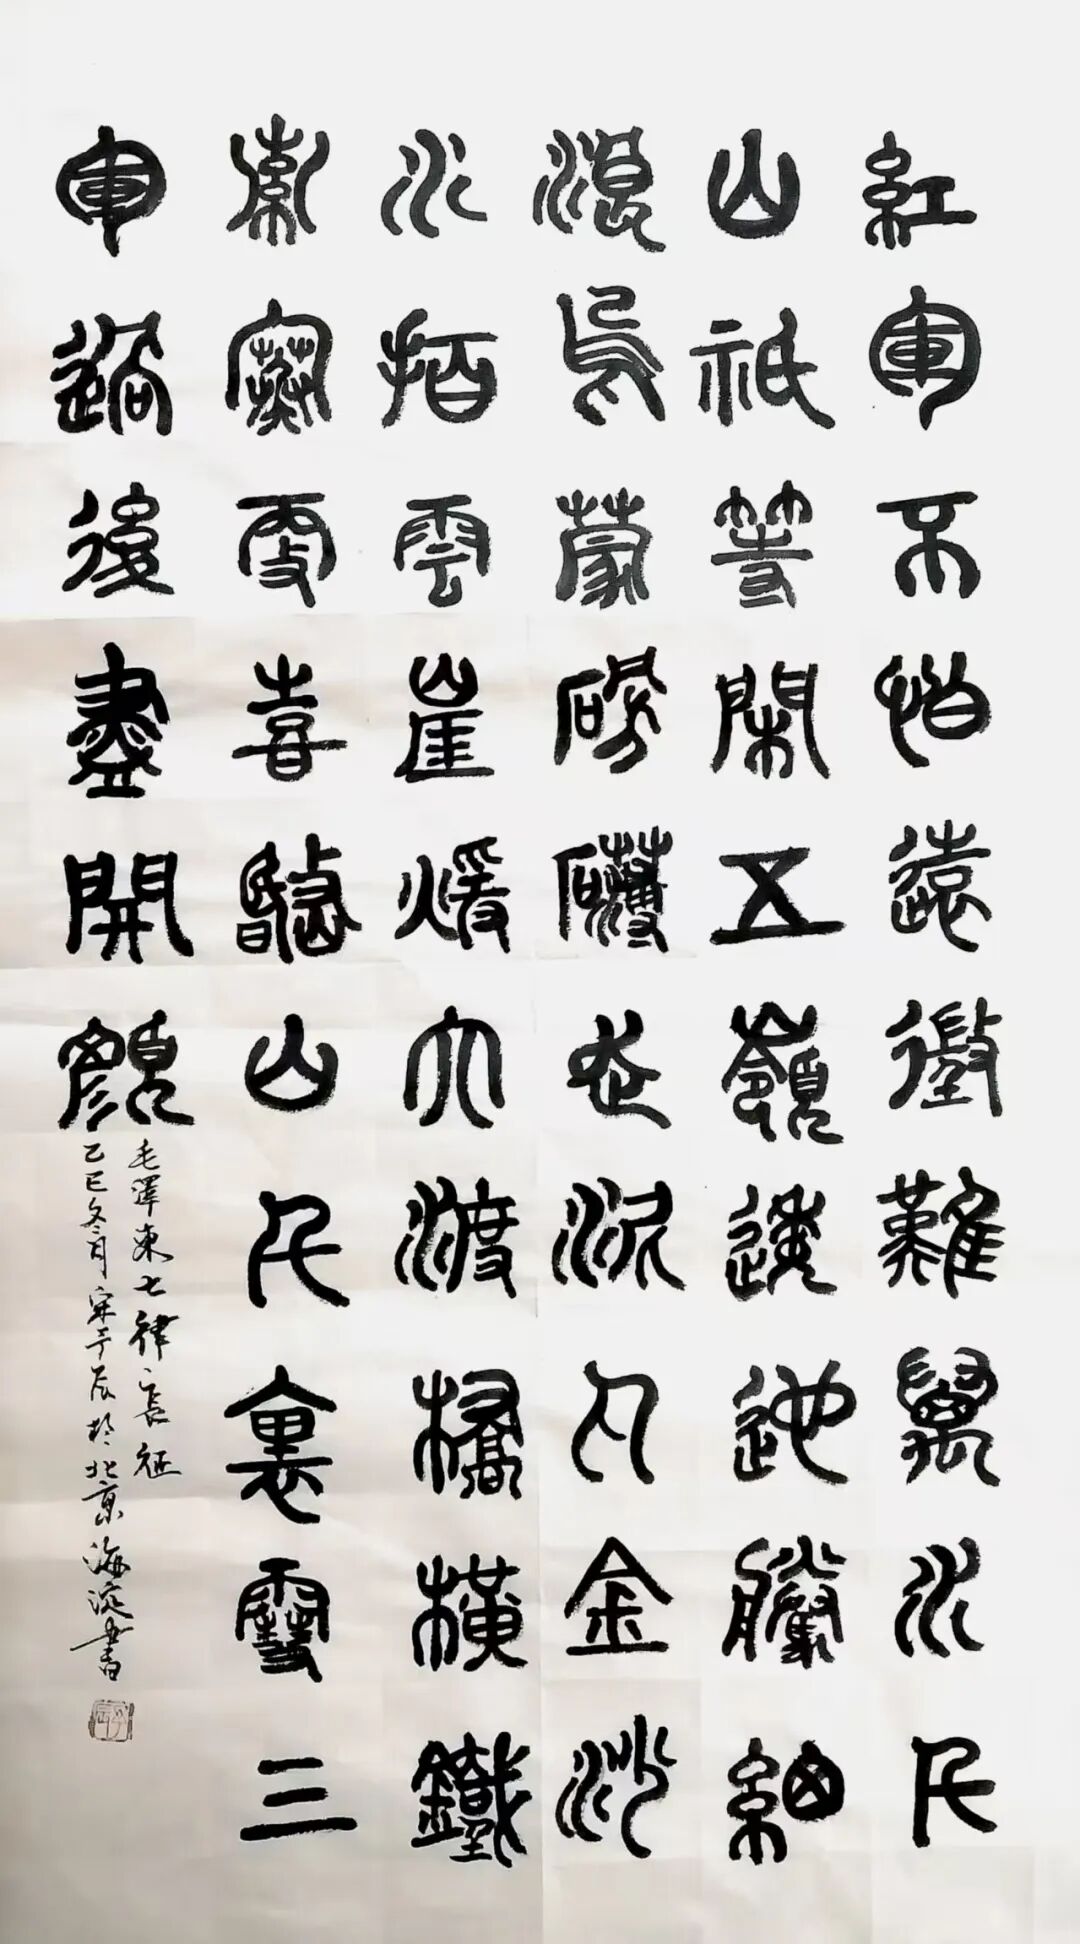 紅軍不怕遠徵難萬水千
山祇等閑五嶺逶迆騰細
浪烏蒙磅礴走泥丸金沙
水拍雲崖煖大渡橋橫鐵
索寒更喜岷山千裏雪三
軍過後盡開顏
毛澤東七律長征
乙巳冬月宋于辰於北京海淀書